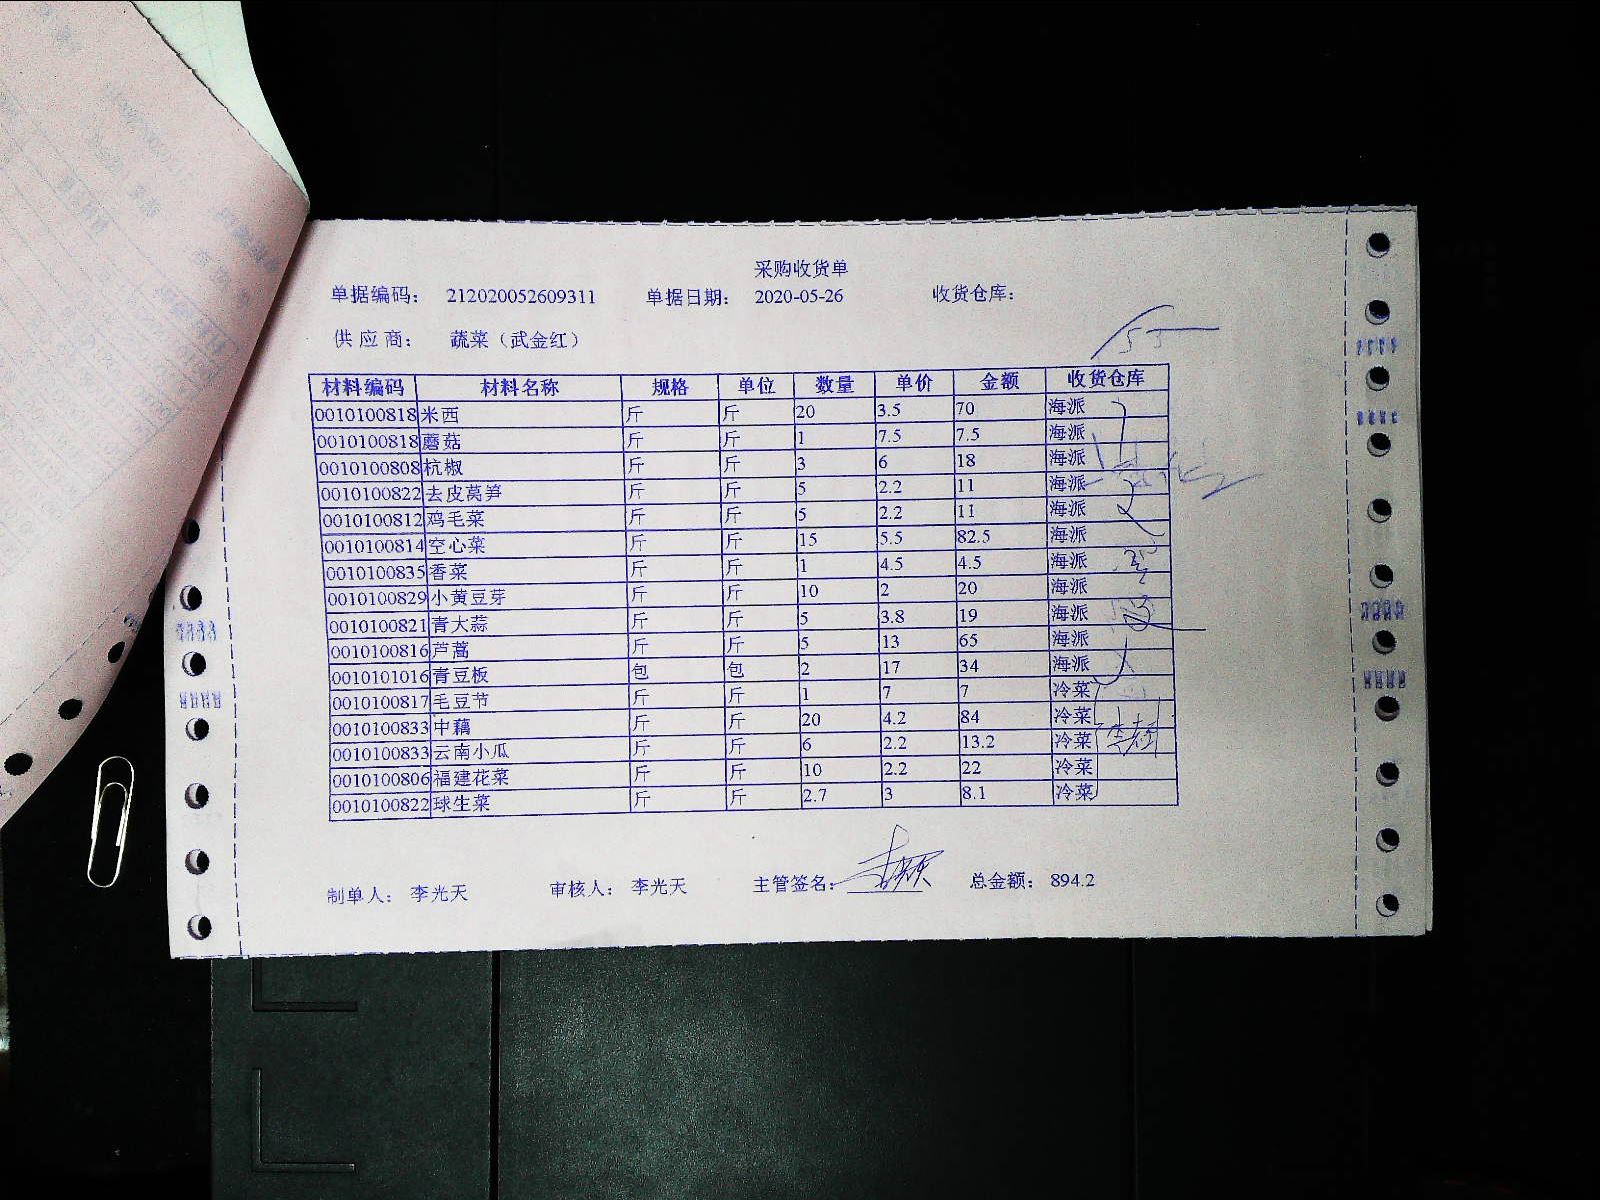 采购收货单
单据编码： 212020052609311 单据日期： 2020-05-26 收货仓库：
供应商： 蔬菜（武金红）
55
材料编码 材料名称 规格 单位 数量 单价 金额 收货仓库
0010100818 米西 斤 斤 20 3.5 70 海派
0010100818 蘑菇 斤 斤 1 7.5 7.5 海派
0010100808 杭椒 斤 斤 3 6 18 海派
0010100822 去皮莴笋 斤 斤 5 2.2 11 海派
0010100812 鸡毛菜 斤 斤 5 2.2 11 海派
0010100814 空心菜 斤 斤 15 5.5 82.5 海派
0010100835 香菜 斤 斤 1 4.5 4.5 海派
0010100829 小黄豆芽 斤 斤 10 2 20 海派
0010100821 青大蒜 斤 斤 5 3.8 19 海派
0010100816 芦蒿 斤 斤 5 13 65 海派
0010101016 青豆板 包 包 2 17 34 海派
0010100817 毛豆节 斤 斤 1 7 7 冷菜
0010100833 中藕 斤 斤 20 4.2 84 冷菜
0010100833 云南小瓜 斤 斤 6 2.2 13.2 冷菜
0010100806 福建花菜 斤 斤 10 2.2 22 冷菜
0010100822 球生菜 斤 斤 2.7 3 8.1 冷菜
制单人： 李光天 审核人： 李光天 主管签名： 总金额： 894.2